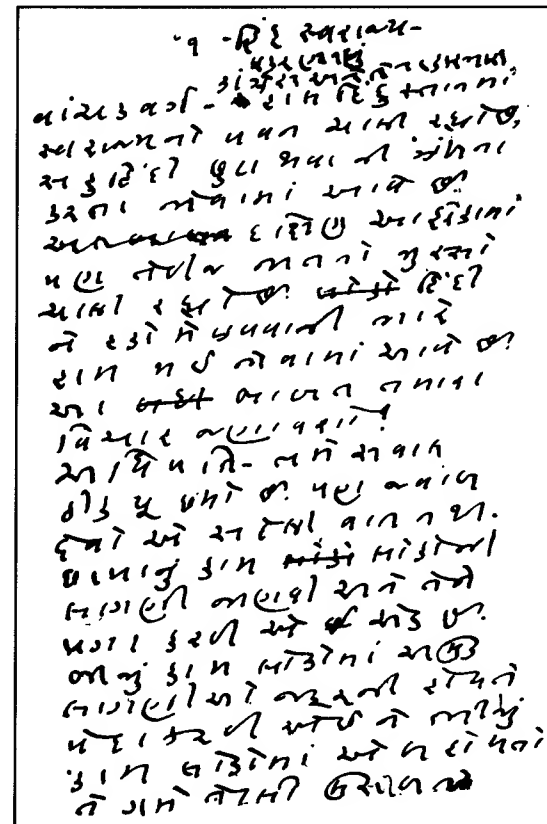 ૧ - હિંદ સ્વરાજ્ય -
પ્રકરણ ૧ લું
કાંગ્રેસ અને તેના કારભારી
વાંચક વર્ગ - હાલ હિંદુસ્તાનમાં
સ્વરાજ્યનો પવન ચાલી રહ્યો છે,
સહુ હિંદી છુટા થવાની ઝંખના
કરતા જોવામાં આવે છે.
દક્ષિણ આફ્રીકામાં
પણ તેવીજ જાતનો જુસ્સો
ચાલી રહ્યો છે. હિંદી
ને હકો મેળવવાની ભારે
હામ થઈ જોવામાં આવે છે.
આ બાબત તમારા
વિચાર જણાવશો?
અધિપતિ - તમે સવાલ
ઠીક પૂછ્યો છે. પણ જવાબ
દેવો એ સહેલી વાત નથી.
છાપાનું કામ લોકોની
લાગણી જાણવી અને તેને
પ્રગટ કરવી એ એક છે.
બીજું કામ લોકોમાં અમુક
લાગણીઓ જરૂરની હોય તે
પેદા કરવી એ છે ને ત્રીજું
કામ લોકોમાં એબ હોય તો
તે ગમે તેટલી